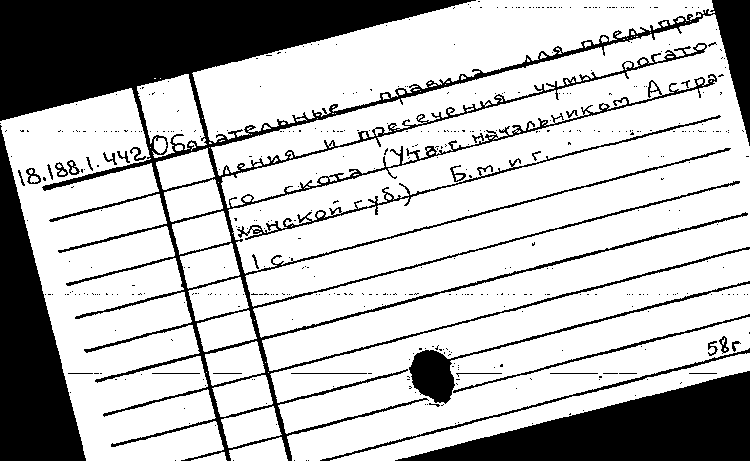 18.188.1.442 Обязательные правила для предупреж-
дения и пресечения чумы рогато-
го скота (Утв. г. начальником Астра-
ханской губ.). Б.м. и г.
1 с.
58г